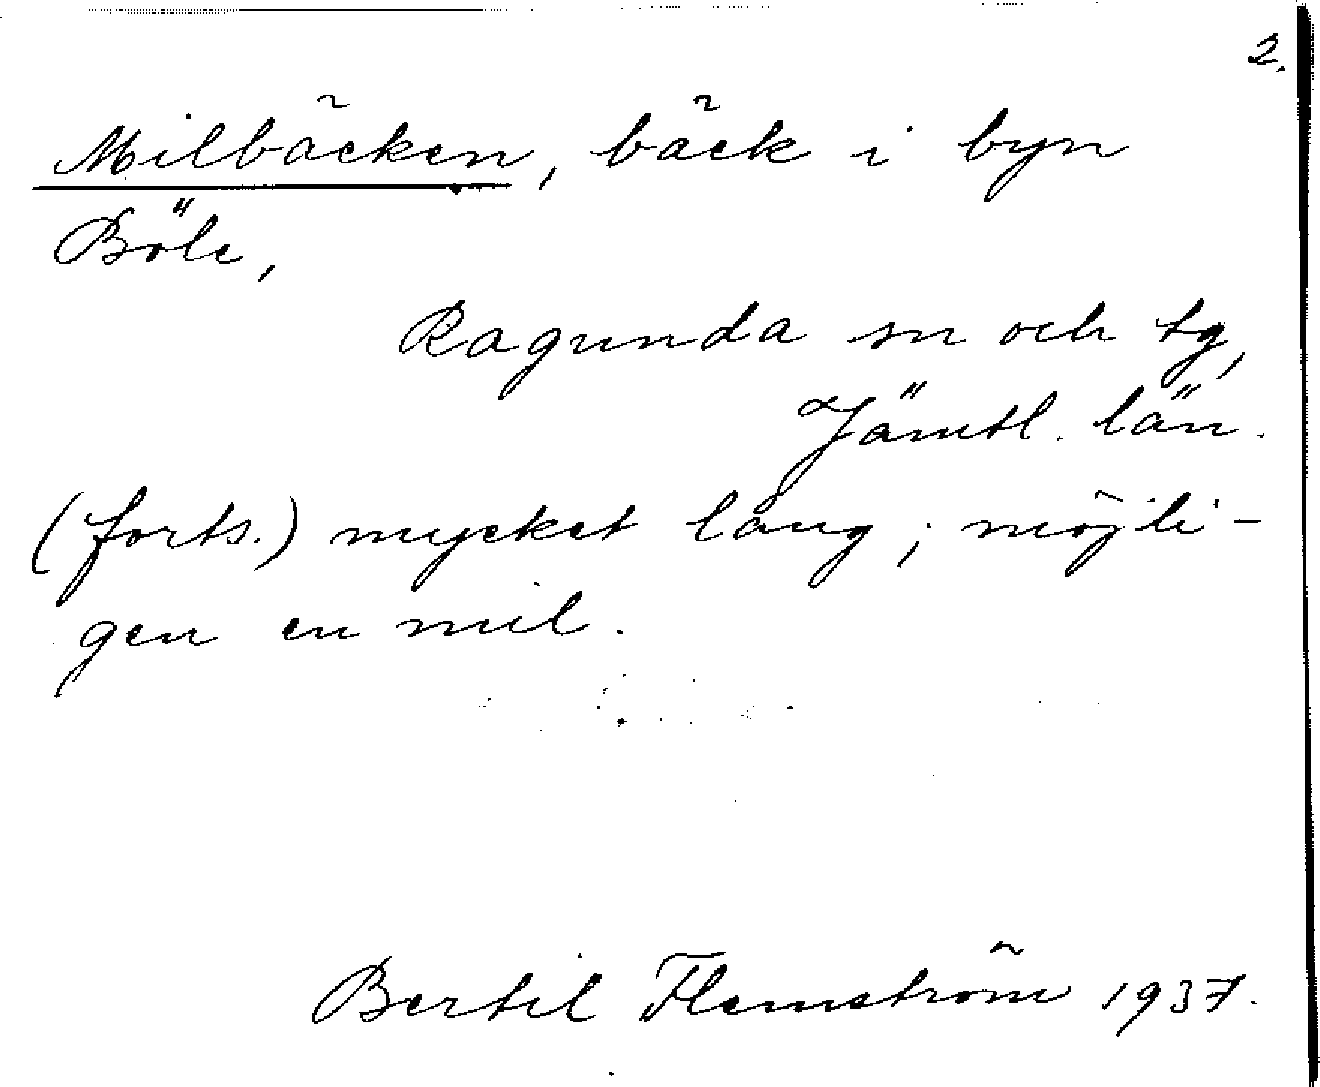 2.
Milbäcken, bäck i byn
Böle,
Ragunda sn och tg,
Jämtl. län.
(forts.) mycket lång; möjli-
gen en mil.
Bertil Flemström 1937.